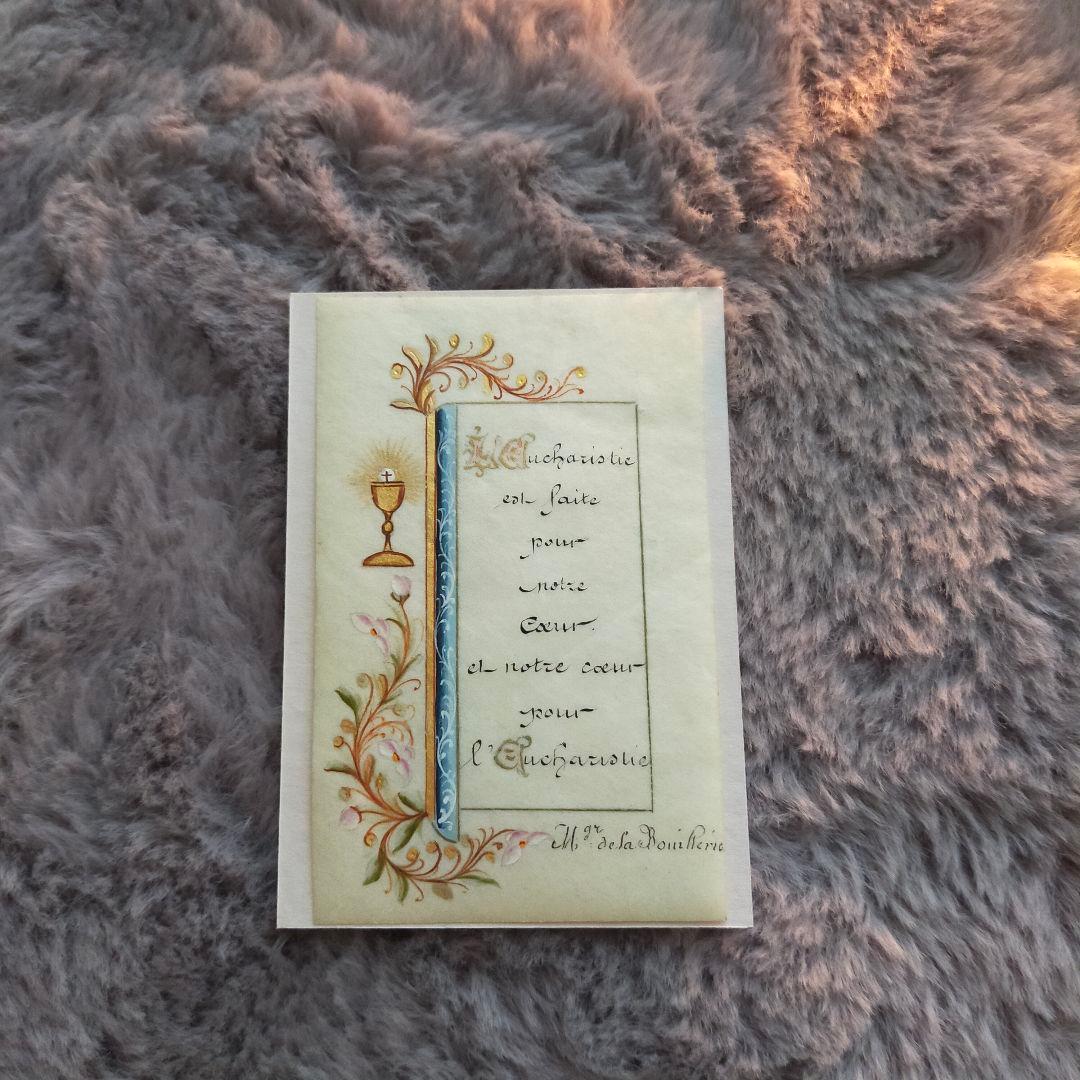 L'Eucharistie
est faite
pour
notre
Cœur.
et notre cœur
pour
l'Eucharistie
Mgr. de la Bouillerie